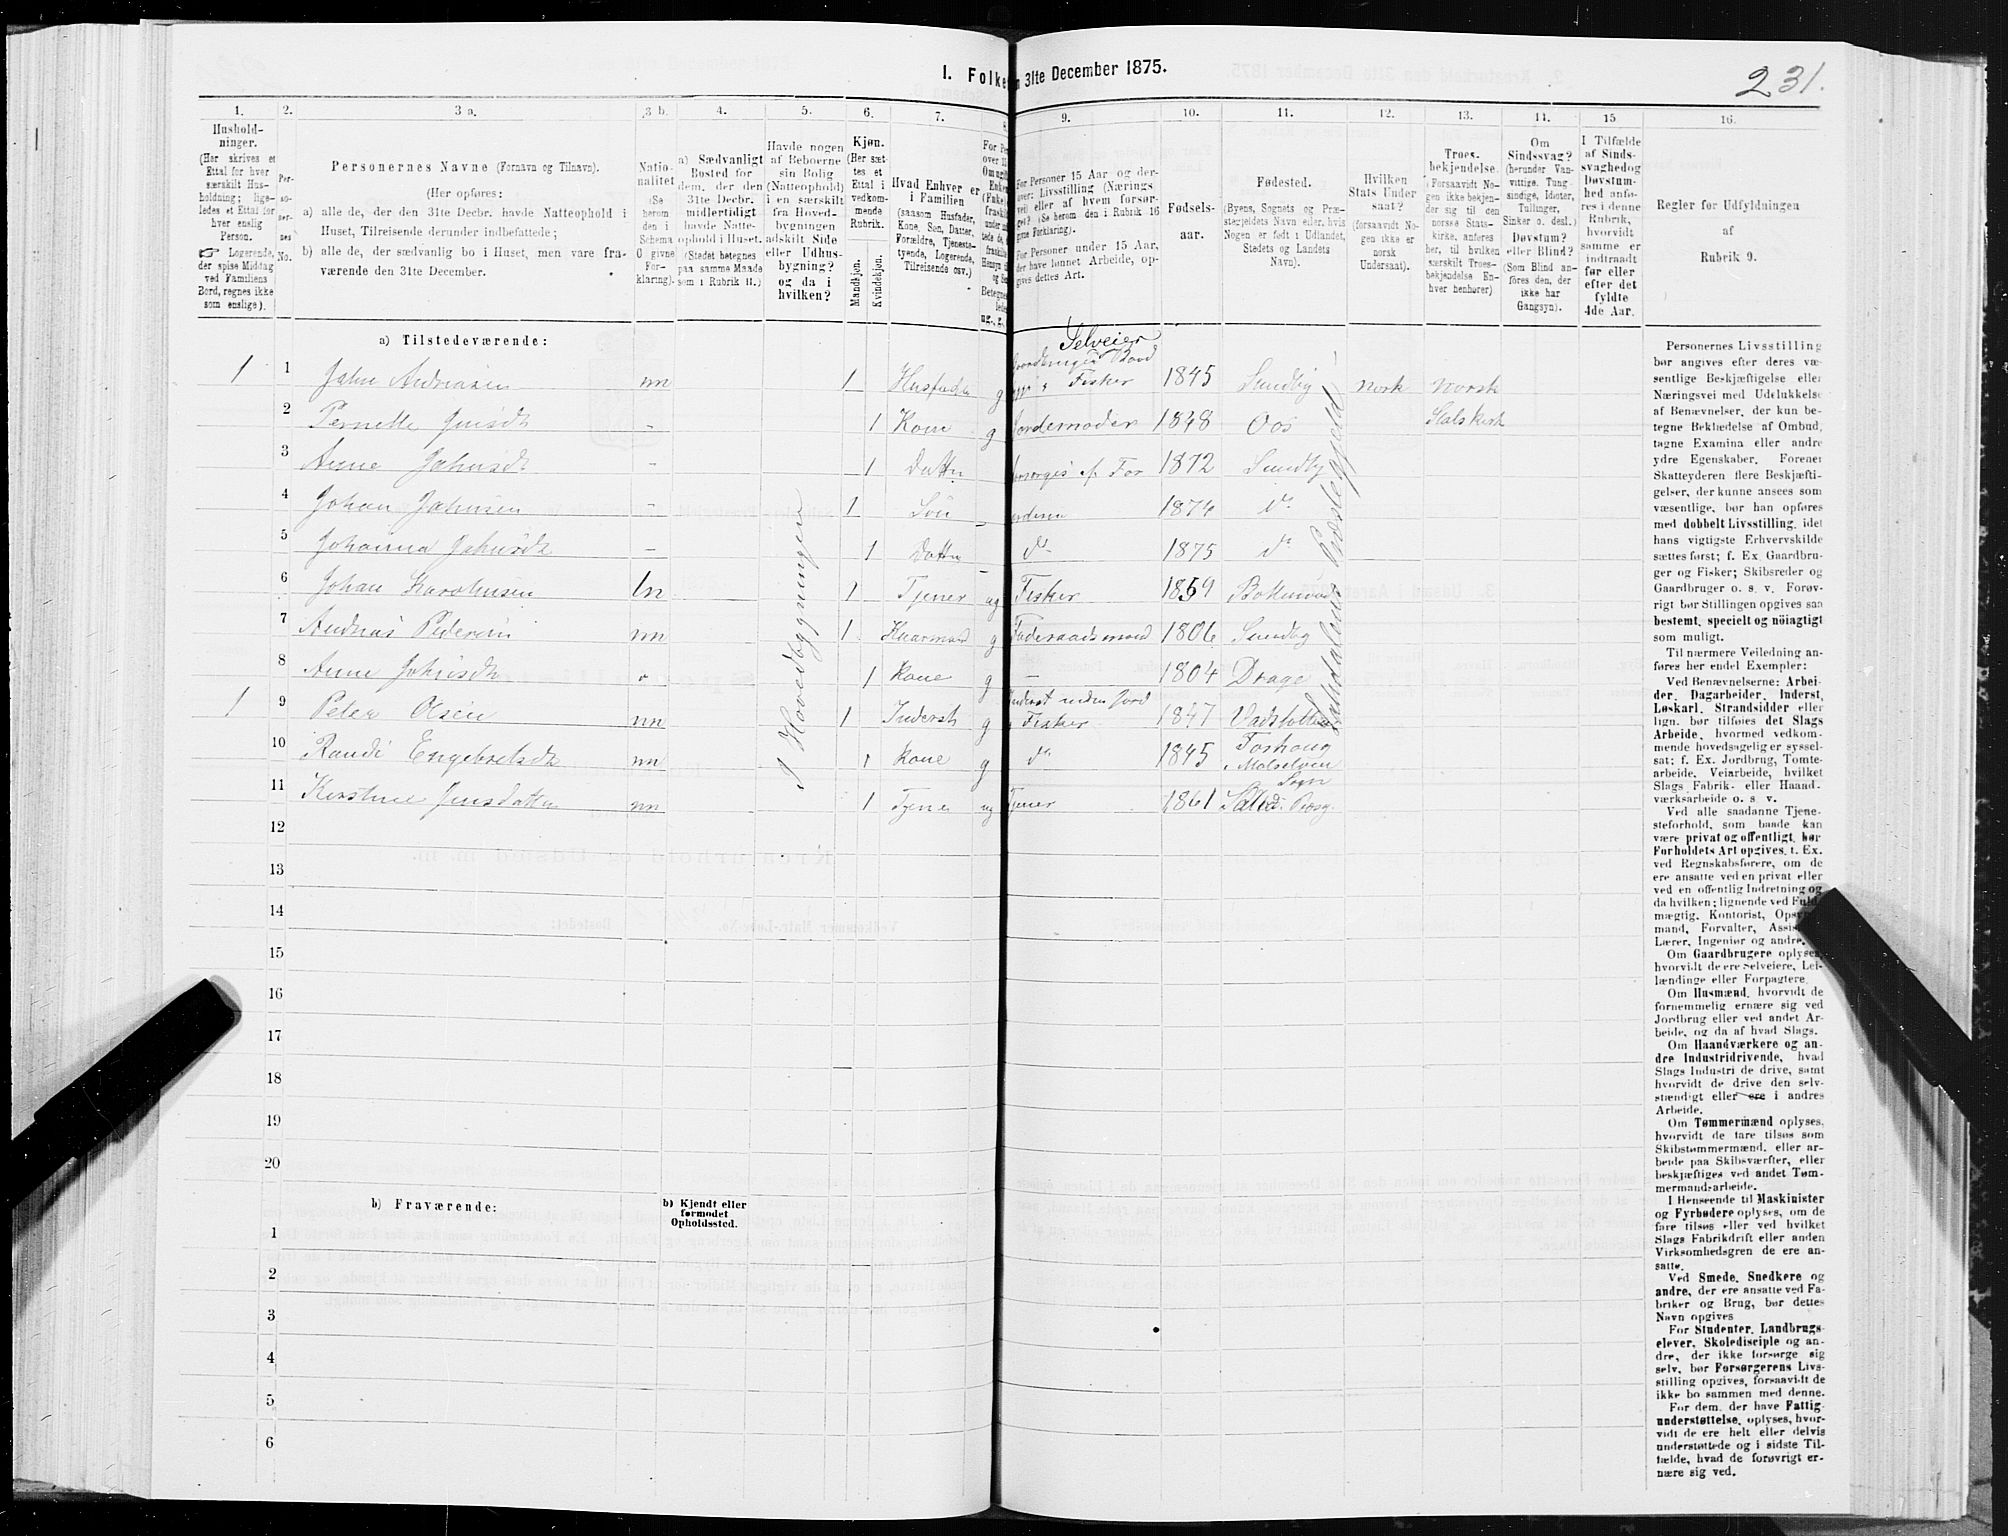 I. Folke n 31te December 1875.
231.
1. 2. 3 a. 3 b. 4. 5. 6. 7. 8. 9. 10. 11. 12. 13. 14. 15 16.
Hushold-
ninger.
(Her skrives et
Ettal for hver
særskilt Hus-
holdning; lige-
ledes et Ettal for
hver enslig
Person.
☞ Logerende,
der spise Middag
ved Familiens
Bord, regnes ikke
som enslige).
Per-
so-
ner-
nes
No.
Personernes Navne (Fornavn og Tilnavn).
(Her opføres:
a) alle de, der den 31te Decbr. havde Natteophold i
Huset, Tilreisende derunder indbefattede;
b) alle de, der sædvanlig bo i Huset, men vare fra-
værende den 31te December.
Natio-
nalitet
(Se
herom
den i
Schema
O givne
For-
klaring).
a) Sædvanligt
Bosted for
dem, der den
31te Decbr.
midlertidigt
havde Natte-
ophold i Huset.
(Stedet betegnes
paa samme Maade
som i Rubrik 11.)
Havde nogen
af Beboerne
sin Bolig
(Natteophold)
i en særskilt
fra Hoved-
bygningen
adskilt Side
eller Udhus-
bygning?
og da i
hvilken?
Kjøn.
(Her sæt-
tes et
Ettal i
vedkom-
mende
Rubrik.
Mandkjøn.
Kvindekjøn.
Hvad Enhver er
i Familien
(saasom Husfader,
Kone, Søn, Datter,
Forældre, Tjeneste-
tyende, Logerende,
Tilreisende osv.)
For Personer 15 Aar og der-
over: Livsstilling (Nærings
vei) eller af hvem forsør-
get? (Se herom den i Rubrik 16
givne Forklaring).
For Personer under 15 Aar,
der have lønnet Arbeide, op-
gives dettes Art.
Fødsels-
aar.
Fødested.
(Byens, Sognets og Præ-
stegjeldets Navn eller, hvis
Nogen er født i Udlandet,
Stedets og Landets
Navn).
Hvilken
Stats Under
saat?
(forsaavidt No-
gen ikke er
norsk
Undersaat).
Troes-
bekjendelse.
(Forsaavidt No-
gen ikke bekjen-
der sig til den
norske Stats-
kirke, anføres
her, til hvilken
særskilt Troes-
bekjendelse En-
hver henhører)
Om
Sindssvag?
(herunder Van-
vittige, Tung-
sindige, Idioter,
Tullinger,
Sinker o. desl.)
Døvstum?
eller Blind?
(Som Blind an-
føres den, der
ikke har
Gangsyn).
I Tilfælde
af Sinds-
svaghedog
Døvstum-
hed anfø-
res i denne
Rubrik,
hvorvidt
samme er
indtraadt
før eller
efter det
fyldte
4de Aar.
Regler for Udfyldningen
af
Rubrik 9.
a) Tilstedeværende:
Selveier
1 1 John Andreasen nn 1 Husfader g Fisker 1845 Sundby Norsk Norsk
2 Pernelle - 1 Kone g Jordemoder 1848 Oos Statskirk
3 Anne Johnsdt - 1 Datter 1872 Sundby
4 Johan Johnsen - 1 Søn 1874 do
5 Johanna Johnsdt - 1 Datter do 1875 do
6 Johan ln 1 Tjener ug Fisker 1859
7 Andreas Pedersen nn 1 g Føderaadsmand 1806 Sundby
8 Anne Johnsdt 1 Kone g - 1804 Drage
Inderst uden Jord
1 9 Peter Olsen nn 1 Inderst g Fisker 1847
10 Randi Engebretsdt nn 1 Kone g do 1845 i Malselven
Sogn
11 Kirstine Jensdatter nn 1 Tjener ug Tjener 1861
I Hovedbygningen
Saltdalens Præstegjeld
12
13
14
15
16
17
18
19
20
b) Fraværende:
b) Kjendt eller
formodet
Opholdssted.
1
2
3
4
5
6
Personernes Livsstilling
bør angives efter deres væ-
sentlige Beskjæftigelse eller
Næringsvei med Udelukkelse
af Benævnelser, der kun be-
tegne Beklædelse af Ombud,
tagne Examina eller andre
ydre Egenskaber. Forener
Skatteyderen flere Beskjæfti-
gelser, der kunne ansees som
væsentlige, bør han opføres
med dobbelt Livsstilling, idet
hans vigtigste Erhvervskilde
sættes først; f. Ex. Gaardbru-
ger og Fisker; Skibsreder og
Gaardbruger o. s. v. Forøv-
rigt bør Stillingen opgives saa
bestemt, specielt og nöiagtigt
som muligt.
Til nærmere Veiledning an-
føres her endel Exempler:
Ved Benævnelserne: Arbei-
der, Dagarbeider, Inderst,
Løskarl, Strandsidder eller
lign. bør tilføies det Slags
Arbeide, hvormed vedkom-
mende hovedsagelig er syssel-
sat; f. Ex. Jordbrug, Tomte-
arbeide, Veiarbeide, hvilket
Slags Fabrik- eller Haand-
værksarbeide o. s. v.
Ved alle saadanne Tjene-
steforhold, som baade kan
være privat og offentligt, bør
Forholdets Art opgives, t. Ex.
ved Regnskabsførere, om de
ere ansatte ved en privat eller
ved en offentlig Indretning og
da hvilken; lignende ved Fuld-
mægtig, Kontorist,
mand, Forvalter,
Lærer, Ingeniør og andre.
Om Gaardbrugere oplyses,
hvorvidt de ere Selveiere, Lei-
lændinge eller Forpagtere.
Om Husmænd, hvorvidt de
fornemmelig ernære sig ved
Jordbrug eller ved andet Ar-
beide, og da af hvad Slags.
Om Haandværkere og an-
dre Industridrivende, hvad
Slags Industri de drive, samt
hvorvidt de drive den selv-
stændigt eller ere i andres
Arbeide.
Om Tømmermænd oplyses,
hvorvidt de fare tilsøs som
Skibstømmermænd, eller ar-
beide paa Skibsværfter, eller
beskjæftiges ved andet Tøm-
mermandsarbeide.
I Henseende til Maskinister
og Fyrbødere oplyses, om de
fare tilsøs eller ved hvilket
Slags Fabrikdrift eller anden
Virksomhedsgren de ere an-
satte.
Ved Smede, Snedkere og
andre, der ere ansatte ved Fa-
briker og Brug, bør dettes
Navn opgives
For Studenter, Landbrugs-
elever, Skoledisciple og an-
dre, der ikke forsørge sig
selv, bør Forsørgerens Livs-
stilling opgives, forsaavidt de
ikke bo sammen med denne.
For dem, der have Fattig-
understøttelse, oplyses, hvor-
vidt de ere helt eller delvis
understøttede og i sidste Til-
fælde, hvad de forøvrigt er-
nære sig ved.